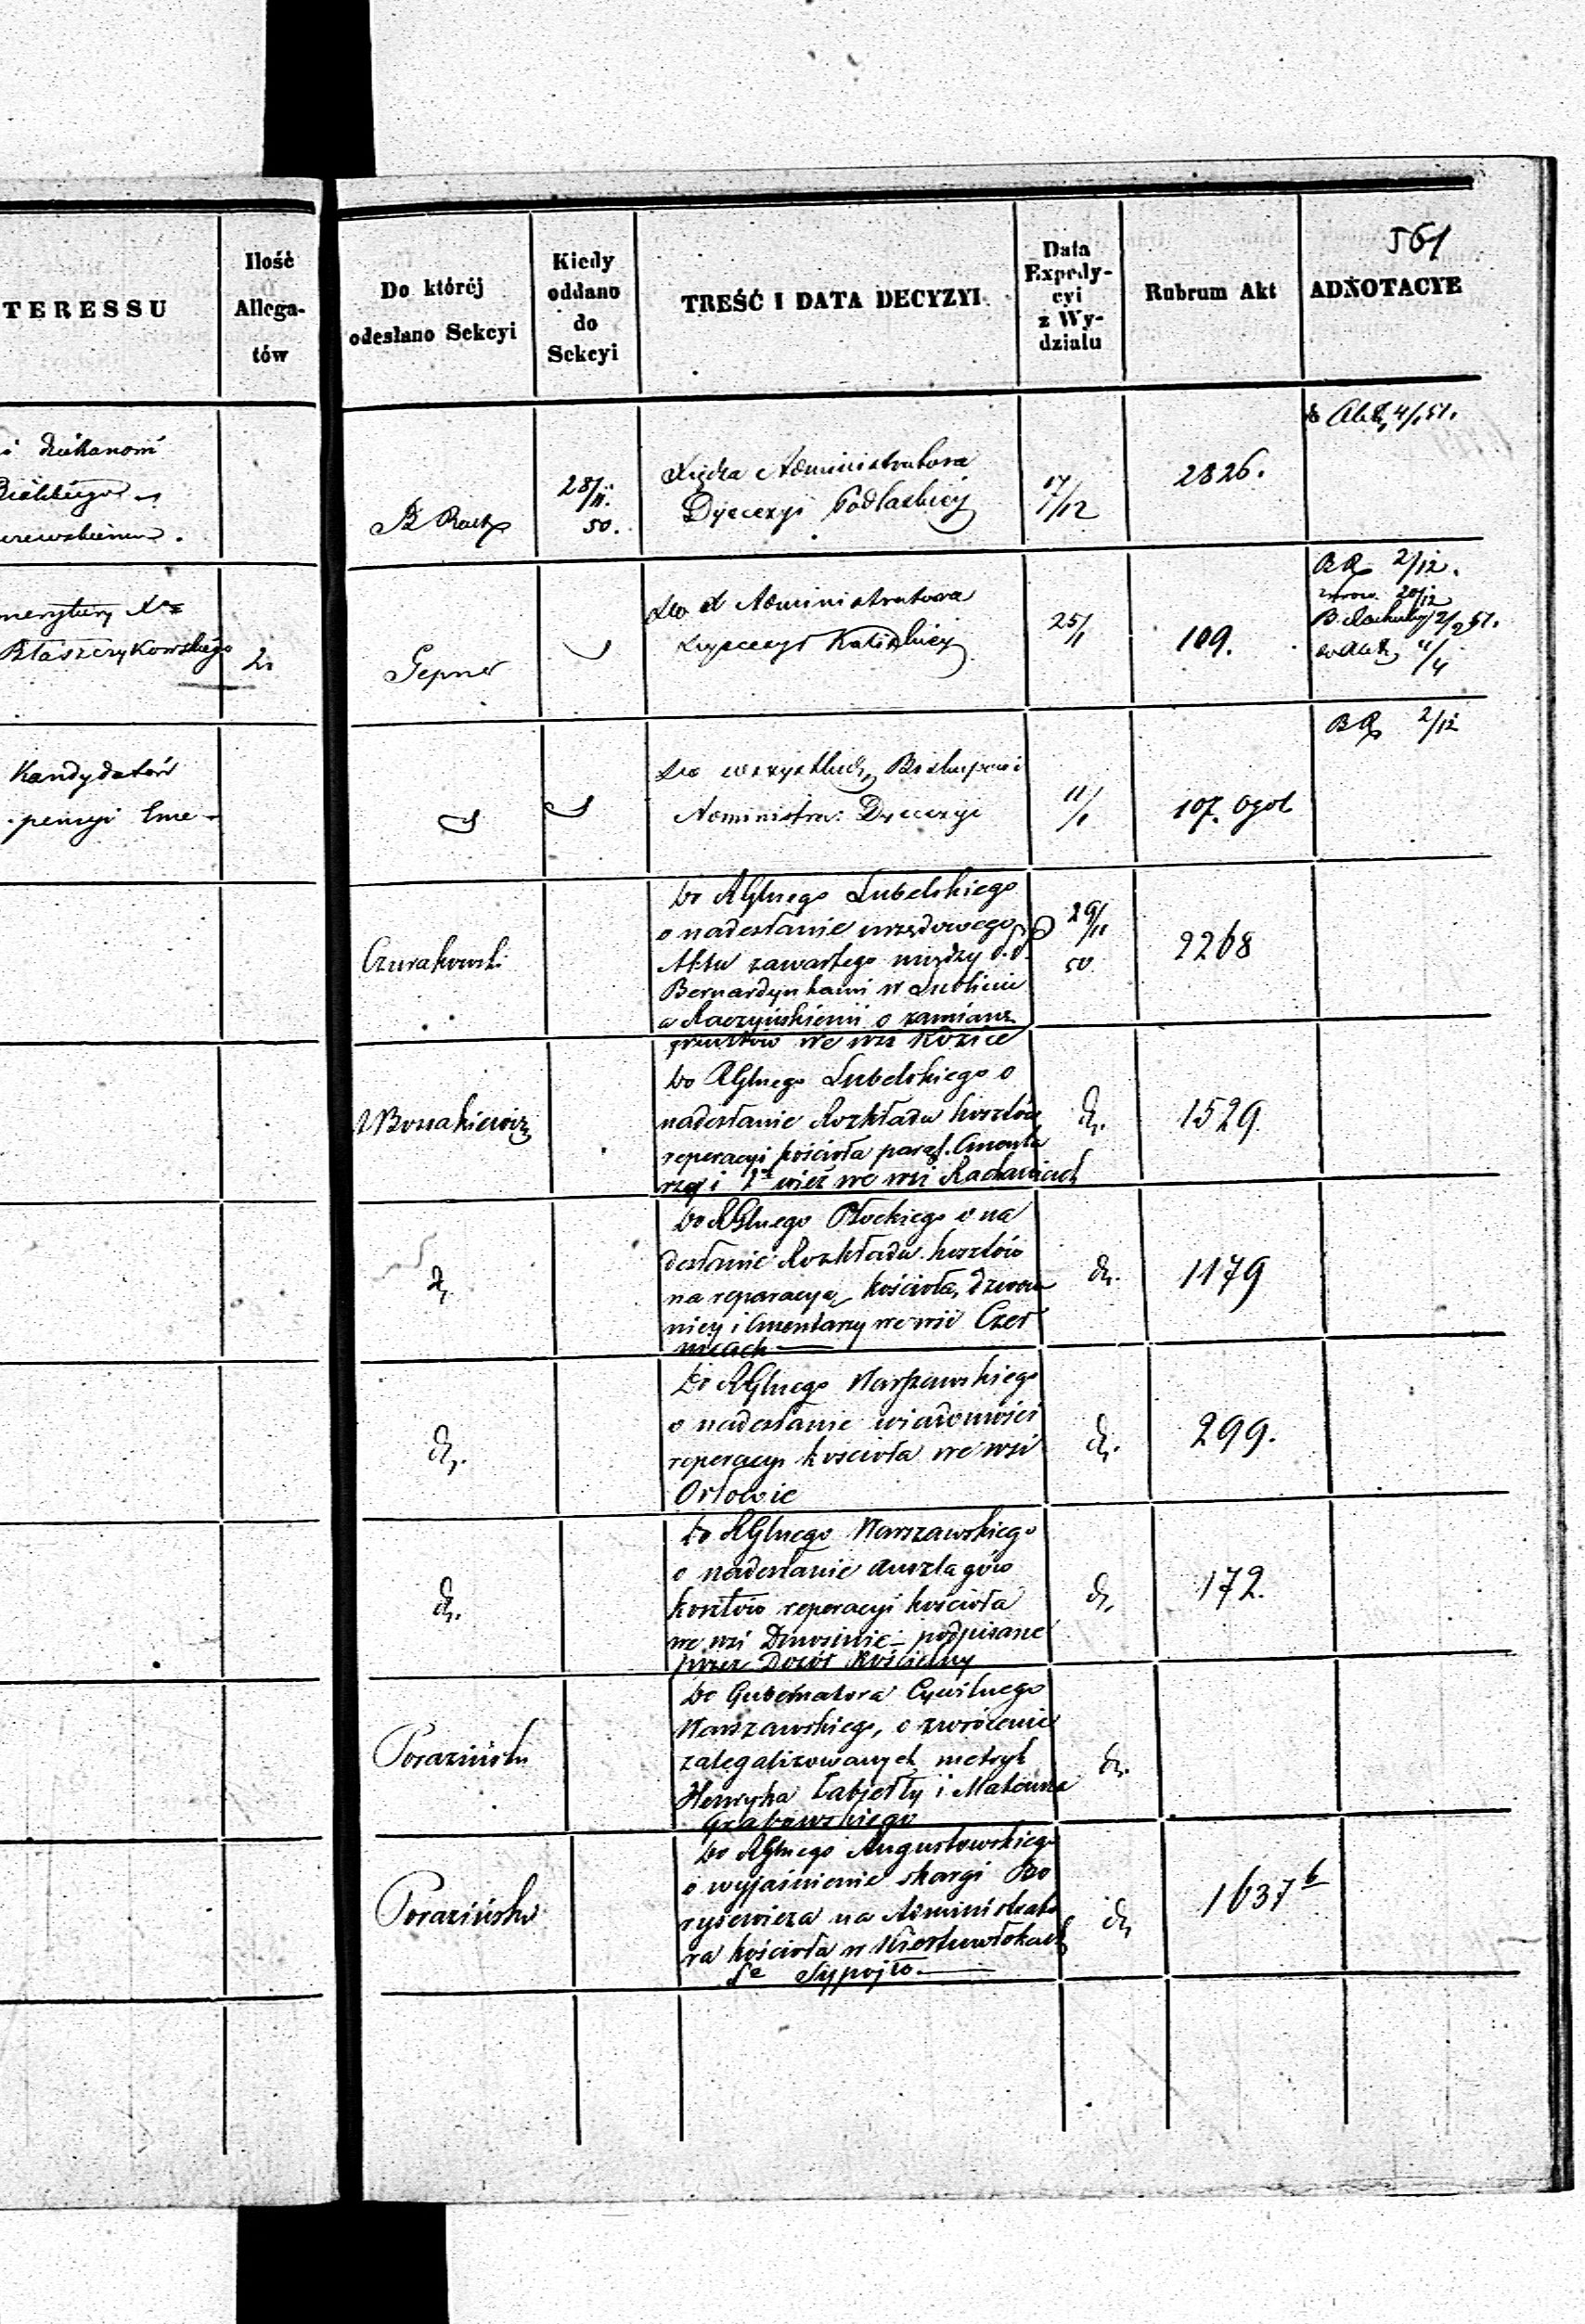 561
TERESSU
Ilość
Allega-
tów
Do któréj
odesłano Sekcyi
Kiedy
oddano
do
Sekcyi
TREŚĆ I DATA DECYZYI.
Data
Expedy-
cyi
z Wy-
działu
Rubrum Akt
ADNOTACYE
i dziekanom
Bialskiego
28/11.
50.
Xiędza Administratora
Dyecezyi Podlaskiej
1/12
2826.
4/1 51.
Błaszczykowskiego
2.
Gepner
Do X Administratora
Dyecezyi Kaliskiej
25/1
109.
2/12.
20/12
2/2 51.
do Akt 4/4
Kandydatów
pensyi Eme-
Do wszystkich Biskupów i
Administra: Dyecezyi
11/1
107. Ogól
2/12
Czurakowski
Do RGlnego Lubelskiego
o nadesłanie urzędowego
Aktu zawartego między P.P.
Bernardynkami w Lublinie
a Raczyńskiemi o zamianę
gruntów we wsi Kozice
29/11
50
2268
Do RGlnego Lubelskiego o
nadesłanie Rozkładu kosztów
reperacyi kościoła paraf. Cmenta
rzy i we wsi
dt.
1529
dt.
Do RGlnego Płockiego o na
desłanie Rozkładu kosztów
na reparacyą kościoła, dzwon
nicy i Cmentarzy we wsi Czer
nicach
dt.
1179
dt.
Do RGlnego Warszawskiego
o nadesłanie wiadomości
reperacyi kościoła we wsi
Orłowie
dt.
299.
dt.
Do RGlnego Warszawskiego
o nadesłanie anszlagów
kosztów reperacyi kościoła
we wsi Dmosinie - podpisane
przez Dozór Kościelny
dt.
172.
Poraziński
Do Gubernatora Cywilnego
Warszawskiego, o zwrócenie
zalegalizowanych metryk
Henryka Łabjetły i
Grabowskiego
dt.
Poraziński
Do RGlnego Augustowskiego
o wyjaśnienie skargi Bo
rysewicza na Administrato
ra kościoła w
Sypojło.
dt.
1637 b